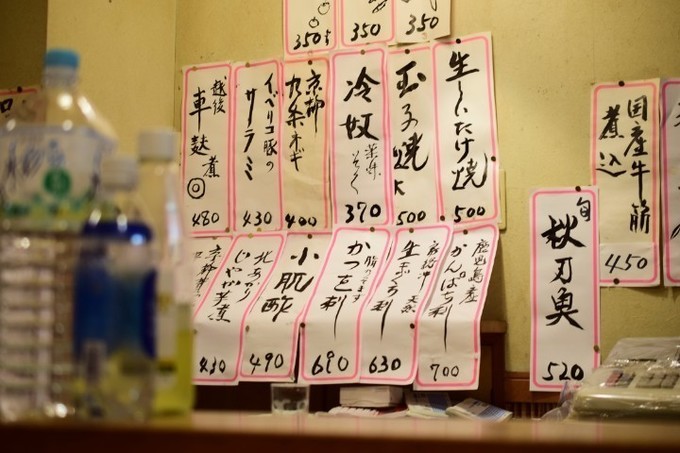 350
350
350
生しいたけ焼
500
玉子焼
500
冷奴
370
京都
九条ネギ
400
イベリコ豚の
サーラミ
430
越後
車麩煮
480
国産牛筋
煮込
450
旬
秋刀魚
520
鹿児島産
かんぱち刺
700
生まぐろ刺
天然
630
かつを刺
690
小肌酢
490
北あかり
じゃが芋煮
430